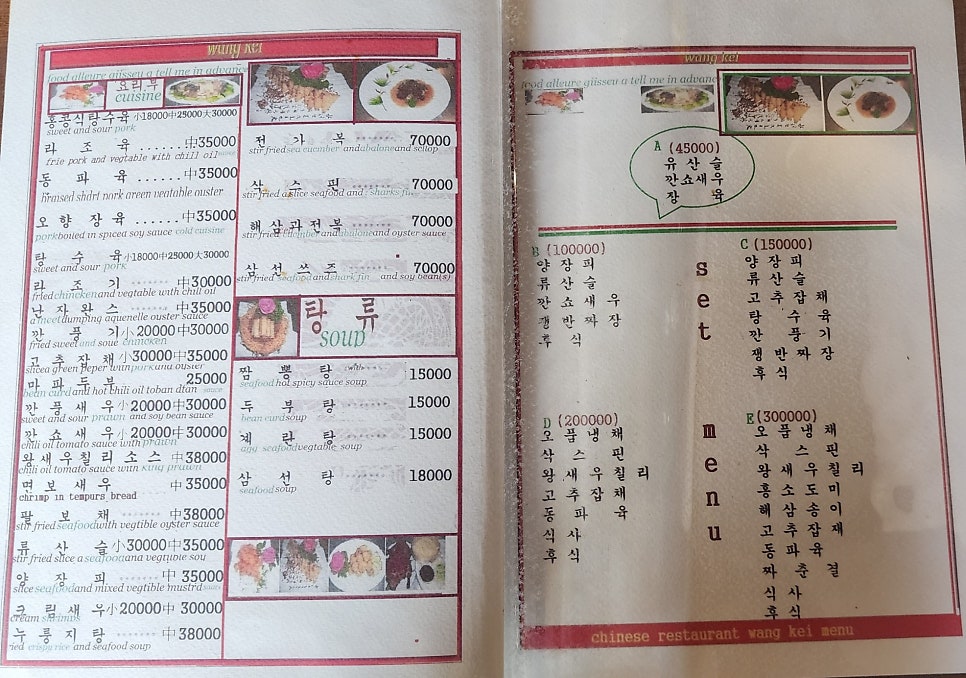 wang kei
food allegre giissey a tell me in advance
요리부
cuisine
홍콩식탕수육 小18000中25000大30000
sweet and sour pork
라 조 육 ...... 中35000
frie pork and vegtable with chill oil
동 파 육 ...... 中35000
오 향 장 육 ...... 中35000
porkboiled in spiced soy sauce cold cuisine
탕 수 육 小18000中25000大30000
sweet and sour pork
라 조 기 ....... 中30000
friedchincken and vegtable with chill oil
난 자 완 스 ....... 中35000
a meet dumping aquenelle ouster sauce
깐 풍 기 小20000中30000
fried sweet and soue chincken
고 추 잡 채 小30000中35000
sliced green peper with pork and ouster
마 파 두 부 25000
bean curd and hot chili oil toban dtan sauce
깐 풍 새 우 小20000中30000
sweet and sour prawn and soy bean sauce
깐 쇼 새 우 小20000中30000
chili oil tomato sauce with prawn
왕새우칠리소스 中38000
chili oil tomato sauce with king prawn
면 보 새 우 中35000
chrimp in tempurs bread
팔 보 채 ....... 中38000
stir fried seafoodwith vegtible oyster sauce
류 산 슬 小30000中35000
stir fried slice a seafoodand vegtible soy
양 장 피 ....... 中 35000
slice seafoodand mixed vegtible mustrd sauce
크림새우小20000中 30000
cream shrimps
누 룽 지 탕 ....... 中38000
ried crispy rice and seafood soup
전 가 복 70000
stir fried sea cucmber andabaloneand scllop
삭 스 핀 70000
stir fried a slice seafood and , sharks fin
해 삼 과 전 복 70000
stir fried cucmber andabaloneand oyster sauce
삼 선 쓰 즈 70000
stir fried seafoodandshark fin and soy bean(s)
탕 류
soup
짬 뽕 탕 (with) 15000
seafood hot spicy sauce soup
두 부 탕 15000
bean curd soup
계 란 탕 15000
agg seafoodvegtable soup
삼 선 탕 18000
seafood soup
wang kei
food allegre giissey a tell me in advance
A (45000)
유 산 슬
깐쇼새우
장 육
B (100000)
양 장 피
류 산 슬
깐 쇼 새 우
쟁 반 짜 장
후 식
set menu
C (150000)
양 장 피
류 산 슬
고 추 잡 채
탕 수 육
깐 풍 기
쟁 반 짜 장
후 식
D (200000)
오 품 냉 채
삭 스 핀
왕 새 우 칠 리
고 추 잡 채
동 파 육
식 사
후 식
E (300000)
오 품 냉 채
삭 스 핀
왕 새 우 칠 리
홍 소 도 미
해 삼 송 이
고 추 잡 재
동 파 육
짜 춘 결
식 사
후 식
chinese restaurant wang kei menu